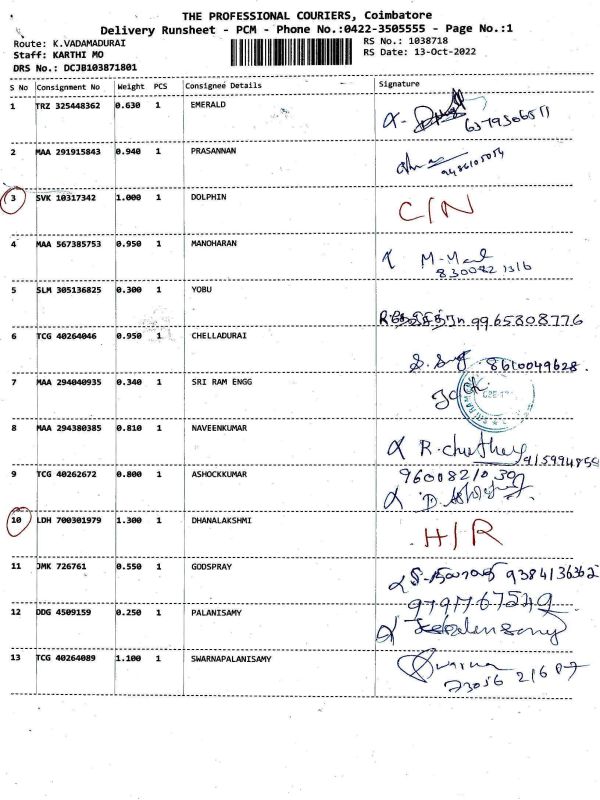 THE PROFESSIONAL COURIERS, Coimbatore
Delivery Runsheet - PCM - Phone No.:0422-3505555 - Page No.:1
Route: K.VADAMADURAI RS No.: 1038718
Staff: KARTHI MO RS Date: 13-Oct-2022
DRS No.: DCJB103871801
S No Consignment No Weight PCS Consignee Details Signature
1 TRZ 325448362 0.630 1 EMERALD
2 MAA 291915843 0.940 1 PRASANNAN
9486105054
3 SVK 10317342 1.000 1 DOLPHIN C/N
4 MAA 567385753 0.950 1 MANOHARAN
5 SLM 305136825 0.300 1 YOBU
9965808776
6 TCG 40264046 0.950 1 CHELLADURAI
8610049628.
7 MAA 294040935 0.340 1 SRI RAM ENGG
8 MAA 294380385 0.810 1 NAVEENKUMAR
9 TCG 40262672 0.800 1 ASHOCKKUMAR
10 LDH 700301979 1.300 1 DHANALAKSHMI H/R
11 JMK 726761 0.550 1 GODSPRAY
9384136362
12 DDG 4509159 0.250 1 PALANISAMY
13 TCG 40264089 1.100 1 SWARNAPALANISAMY